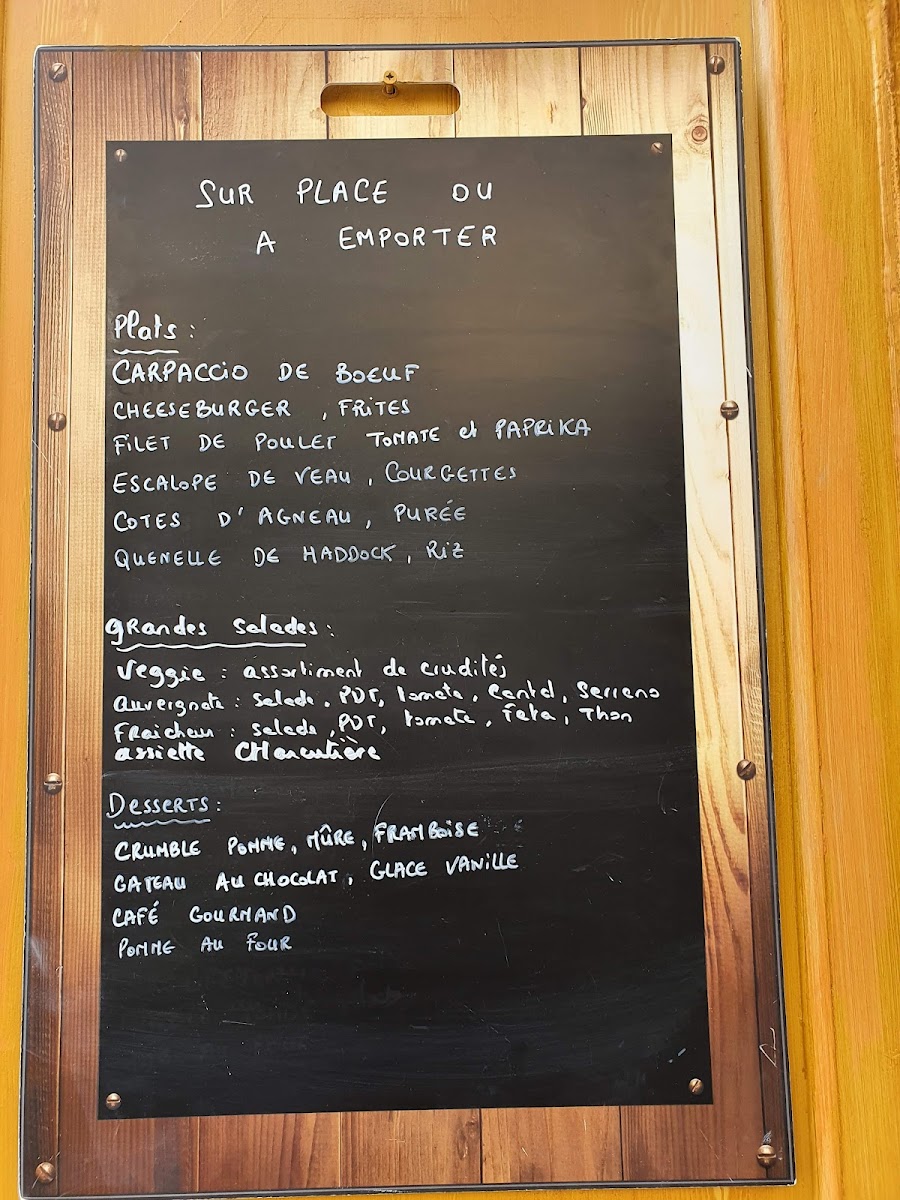 SUR PLACE OU
A EMPORTER
Plats :
CARPACCIO DE BOEUF
CHEESEBURGER , FRITES
FILET DE POULET TOMATE et PAPRIKA
ESCALOPE DE VEAU , COURGETTES
COTES D'AGNEAU , PURÉE
QUENELLE DE HADDOCK , RIZ
GRANDES Salades :
Veggie : assortiment de crudités
Auvergnate : Salade , PDT , tomate , Cantal , Serrano
FRAicheur : Salade , PDT , tomate , Feta , Thon
assiette CHarcutière
DESSERTS :
CRUMBLE POMME , MÛRE , FRAMBOISE
GATEAU AU CHOCOLAT , GLACE VANILLE
CAFÉ GOURMAND
POMME AU FOUR